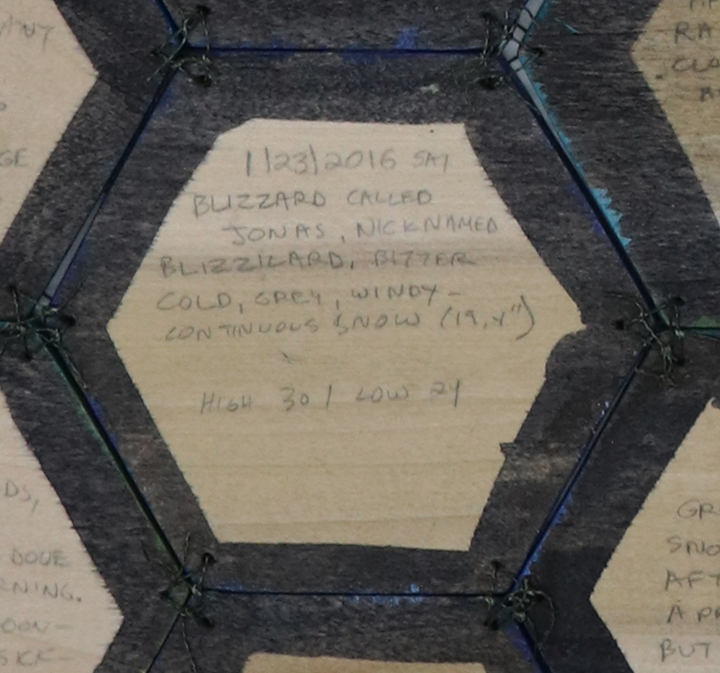 1/23/2016 SAT
BLIZZARD CALLED
JONAS, NICKNAMED
BLIZZILARD, BITTER
COLD, GREY, WINDY-
CONTINUOUS SNOW (19.4")
HIGH 30 / LOW 24
GE
DS,
DOVE
RNING.
OON-
RA
CLO
GR
SNO
AFT
A PR
BUT